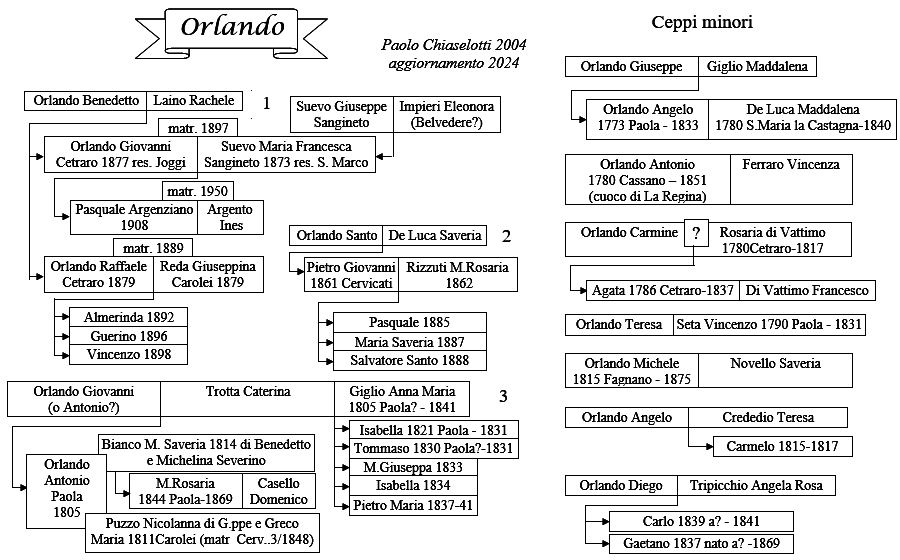 Orlando
Paolo Chiaselotti 2004
aggiornamento 2024
Orlando Benedetto
Laino Rachele
1
Suevo Giuseppe
Sangineto
Impieri Eleonora
(Belvedere?)
matr. 1897
Orlando Giovanni
Cetraro 1877 res. Joggi
Suevo Maria Francesca
Sangineto 1873 res. S. Marco
matr. 1950
Pasquale Argenziano
1908
Argento
Ines
matr. 1889
Orlando Raffaele
Cetraro 1879
Reda Giuseppina
Carolei 1879
Almerinda 1892
Guerino 1896
Vincenzo 1898
Orlando Santo
De Luca Saveria
2
Pietro Giovanni
1861 Cervicati
Rizzuti M.Rosaria
1862
Pasquale 1885
Maria Saveria 1887
Salvatore Santo 1888
Orlando Giovanni
(o Antonio?)
Trotta Caterina
Giglio Anna Maria
1805 Paola? - 1841
3
Isabella 1821 Paola - 1831
Tommaso 1830 Paola?-1831
M.Giuseppa 1833
Isabella 1834
Pietro Maria 1837-41
Bianco M. Saveria 1814 di Benedetto
e Michelina Severino
Orlando
Antonio
Paola
1805
M.Rosaria
1844 Paola-1869
Casello
Domenico
Puzzo Nicolanna di G.ppe e Greco
Maria 1811Carolei (matr Cerv..3/1848)
Ceppi minori
Orlando Giuseppe
Giglio Maddalena
Orlando Angelo
1773 Paola - 1833
De Luca Maddalena
1780 S.Maria la Castagna-1840
Orlando Antonio
1780 Cassano – 1851
(cuoco di La Regina)
Ferraro Vincenza
Orlando Carmine
?
Rosaria di Vattimo
1780Cetraro-1817
Agata 1786 Cetraro-1837
Di Vattimo Francesco
Orlando Teresa
Seta Vincenzo 1790 Paola - 1831
Orlando Michele
1815 Fagnano - 1875
Novello Saveria
Orlando Angelo
Crededio Teresa
Carmelo 1815-1817
Orlando Diego
Tripicchio Angela Rosa
Carlo 1839 a? - 1841
Gaetano 1837 nato a? -1869